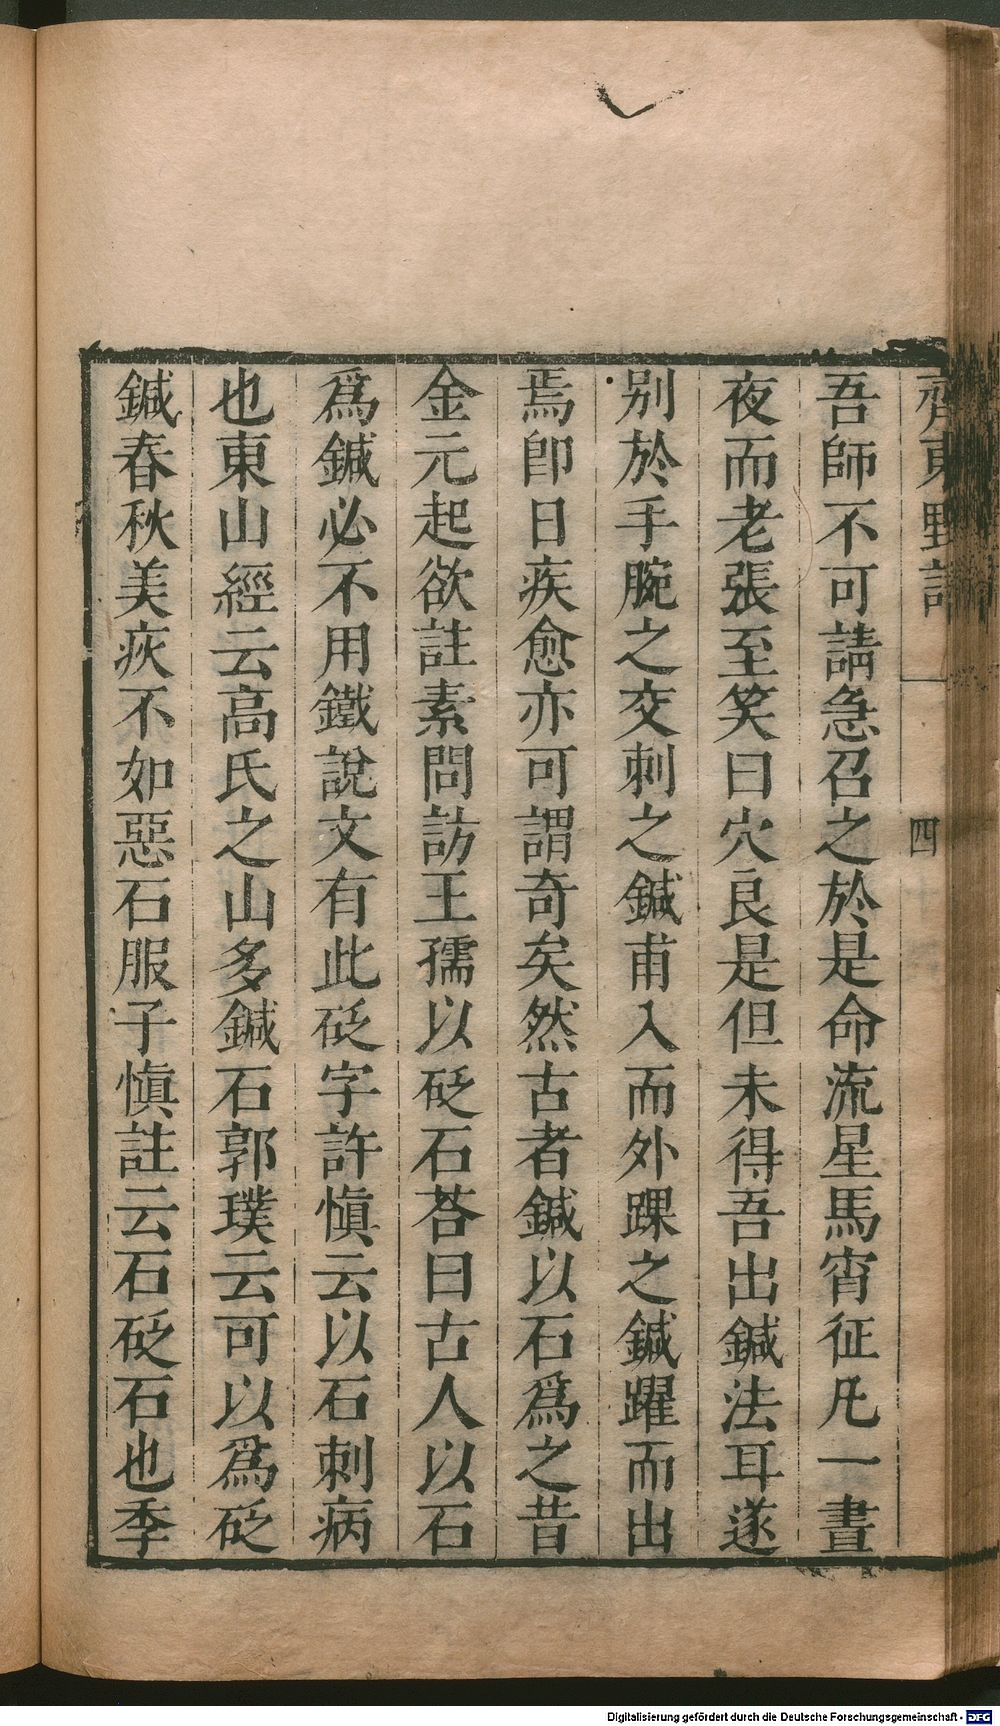 齊東野語
四
吾師不可請急召之於是命流星馬宵征凡一晝
夜而老張至笑曰穴良是但未得吾出鍼法耳遂
別於手腕之交刺之鍼甫入而外踝之鍼躍而出
焉卽日疾愈亦可謂奇矣然古者鍼以石爲之昔
金元起欲註素問訪王孺以砭石荅曰古人以石
爲鍼必不用鐵說文有此砭字許愼云以石刺病
也東山經云高氏之山多鍼石郭璞云可以爲砭
鍼春秋美疢不如惡石服子愼註云石砭石也季
Digitalisierung gefördert durch die Deutsche Forschungsgemeinschaft - DFG